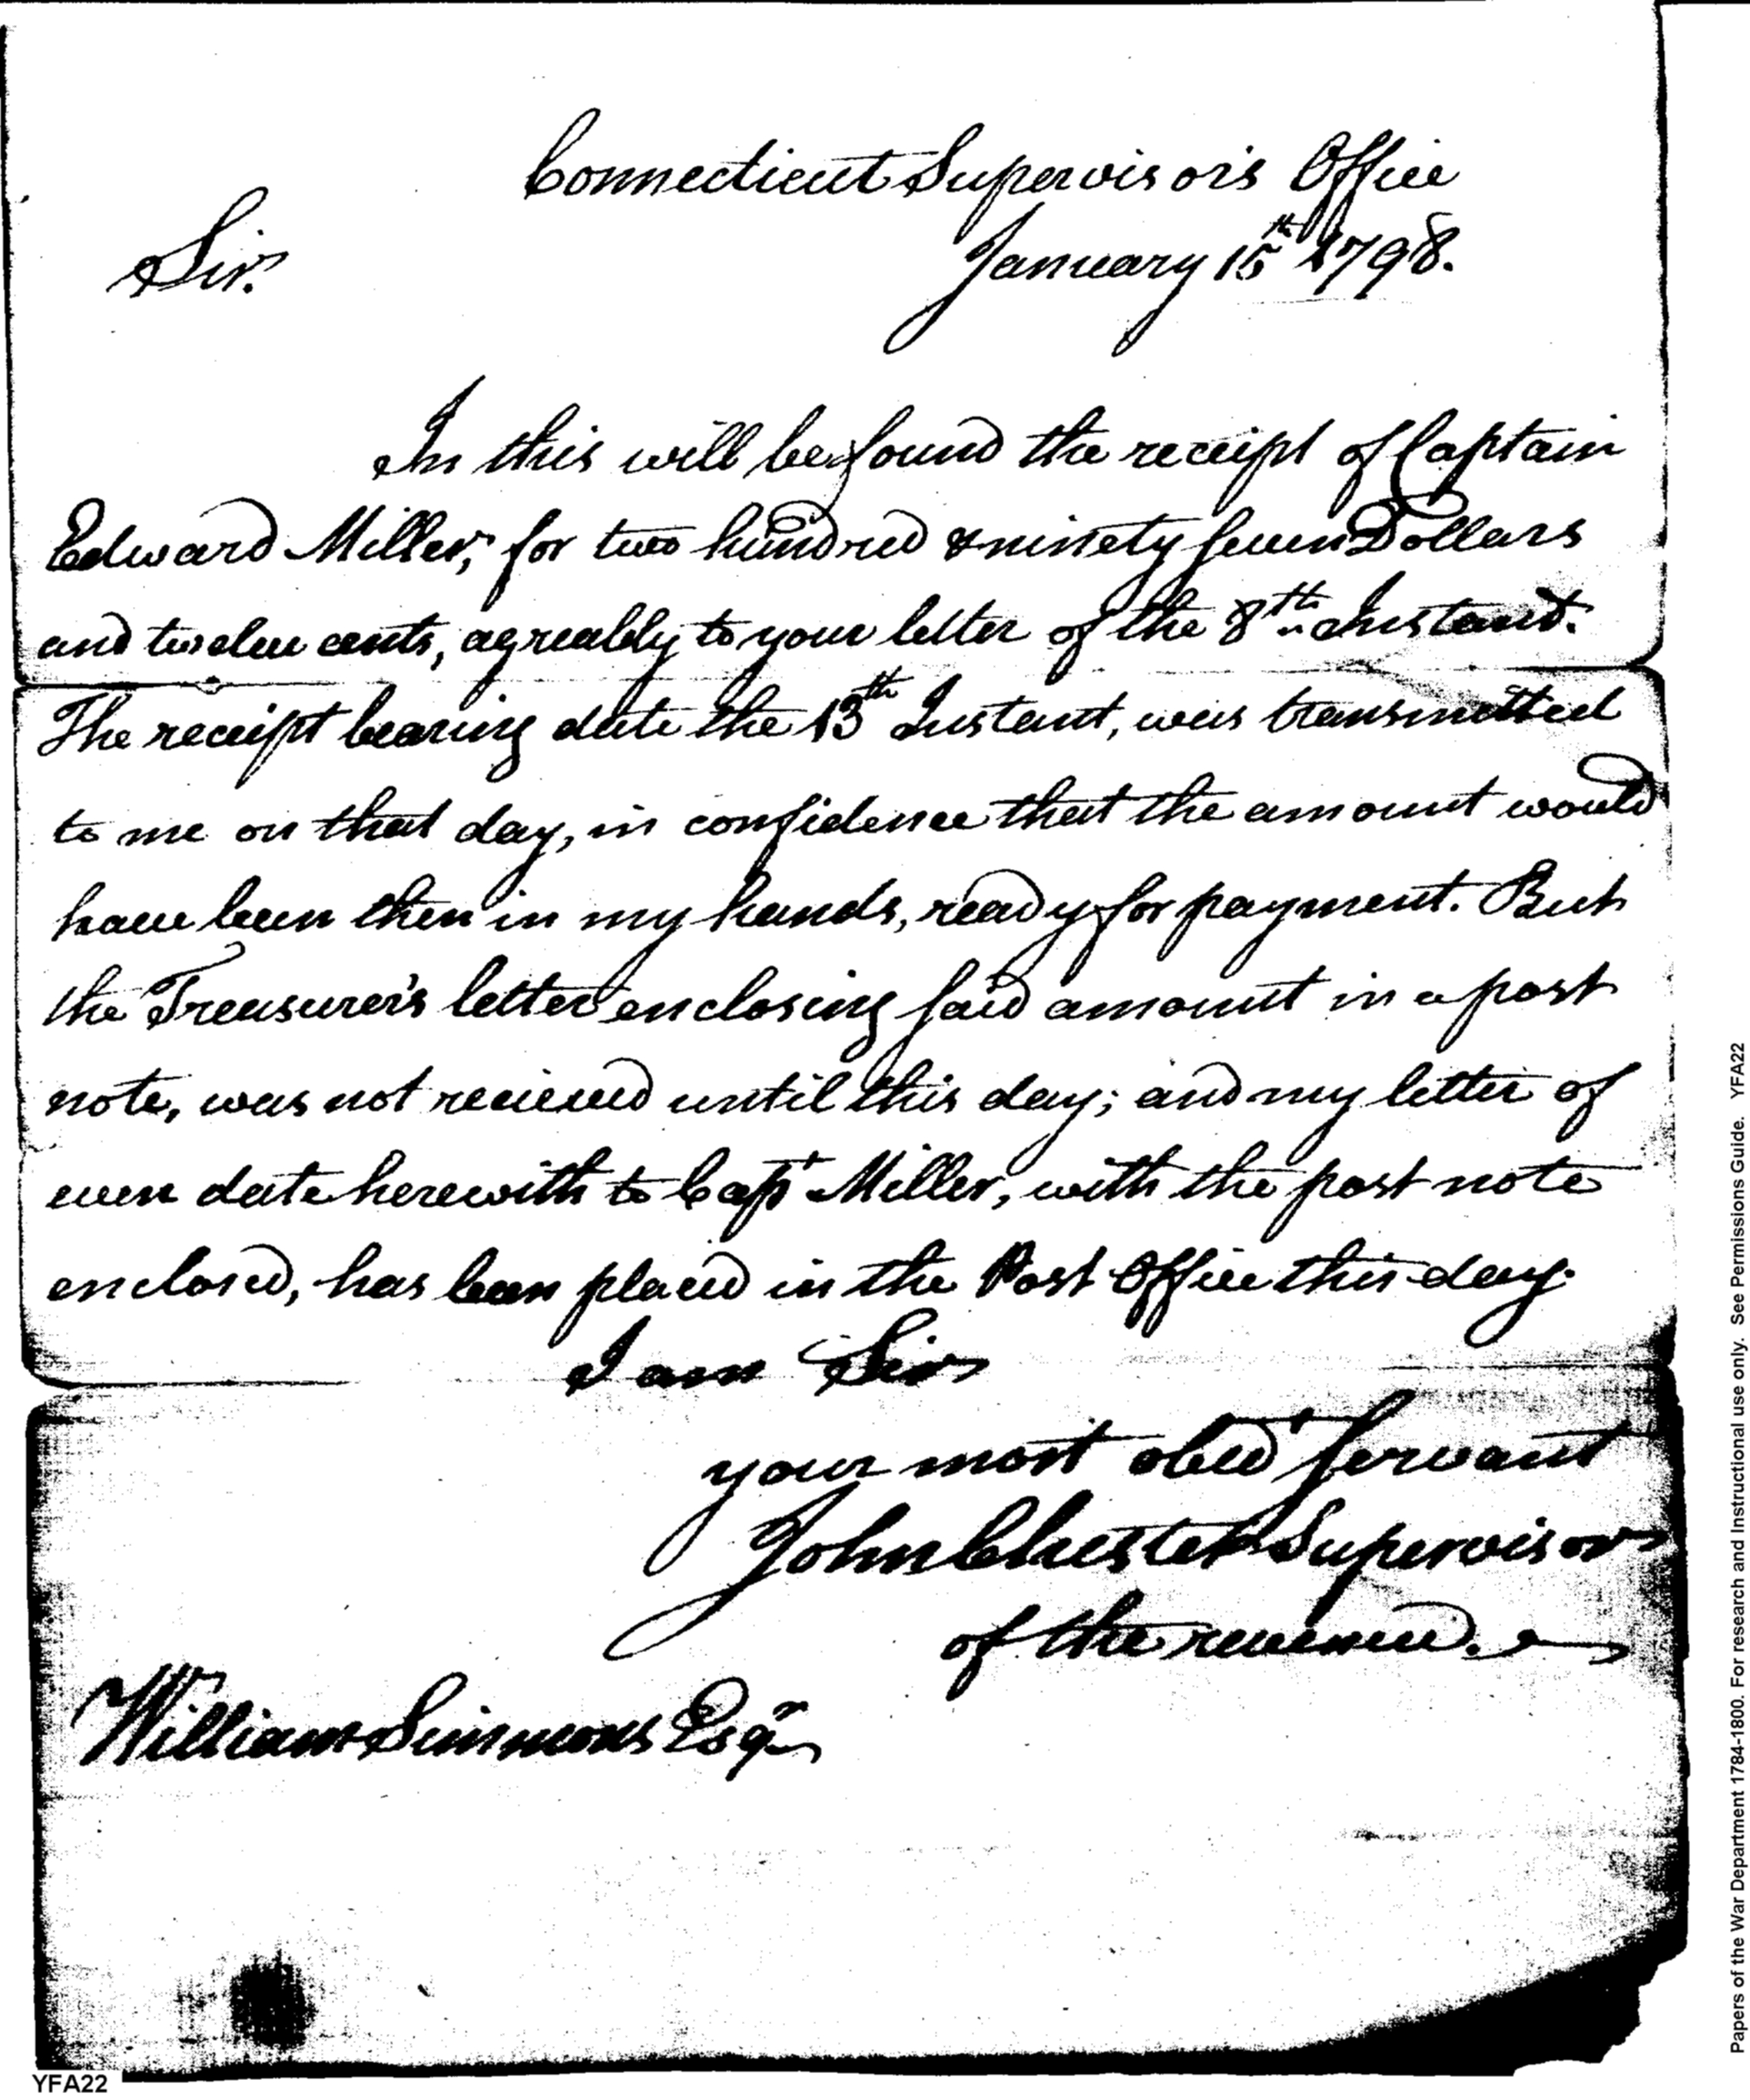 Connecticut Supervisors Office
January 15th 1798.
Sir.
In this will be found the receipt of Captain
Edward Miller, for two hundred & ninety seven Dollars
and twelve cents, agreably to your letter of the 8th Instant.
The receipt bearing date the 13th Instant, was transmitted
to me on that day, in confidence that the amount would
have been then in my hands, ready for payment. But
the Treasurer's letter enclosing said amount in a post
note, was not recieved until this day; and my letter of
even date herewith to Capt Miller, with the post note
enclosed, has been placed in the Post Office this day.
I am Sir
your most obedt servant
John Chester Supervisor
of the revenue.
William Simmons Esqr
YFA22
Papers of the War Department 1784-1800. For research and Instructional use only. See Permissions Guide. YFA22